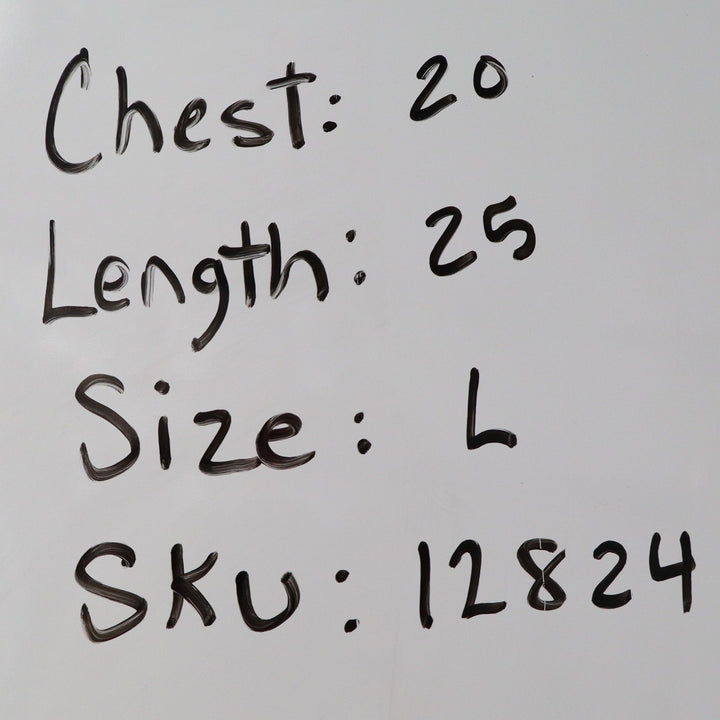 Chest: 20
Length: 25
Size: L
SKU: 12824